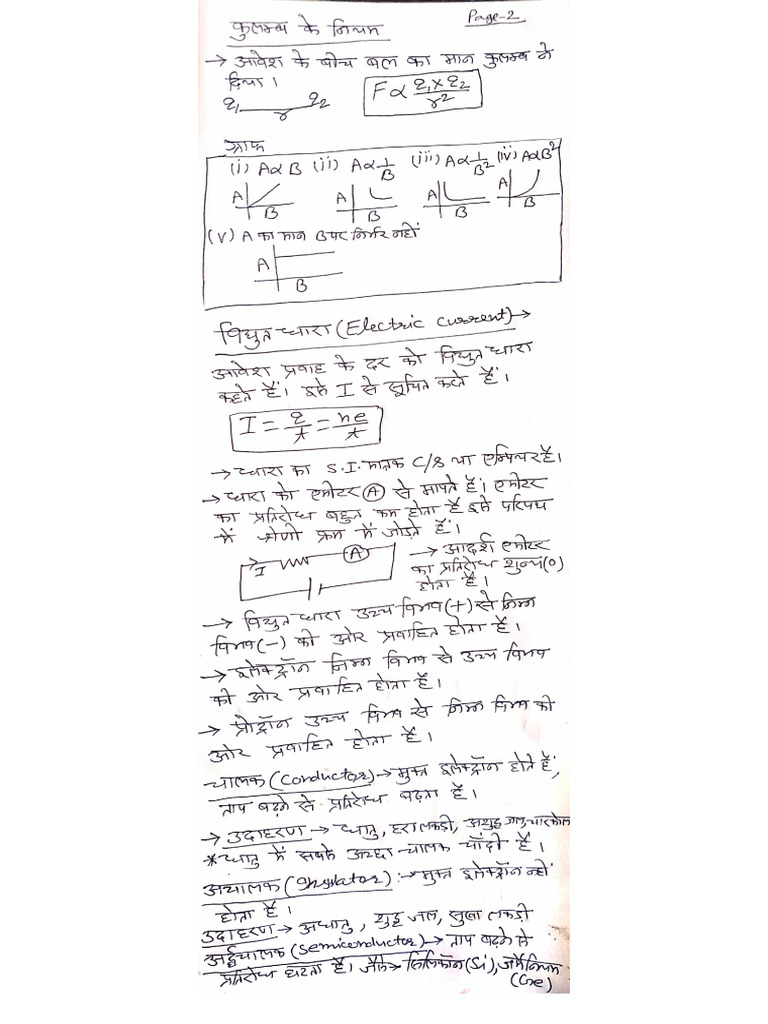 Page-2
कुलम्ब के नियम
→ आवेश के बीच बल का मान कुलम्ब ने
दिया।
q1 r q2 F∝ q1×q2/r²
ग्राफ
(i) A∝B (ii) A∝1/B (iii) A∝1/B² (iv) A∝B²
A B A B A B A B
(v) A का मान B पर निर्भर नहीं
A
B
विद्युत धारा (Electric current)→
आवेश प्रवाह के दर को विद्युत धारा
कहते हैं। इसे I से सूचित करते हैं।
I = q/t = ne/t
→ धारा का S.I. मात्रक C/s या एम्पियर है।
→ धारा को एमीटर (A) से मापते हैं। एमीटर
का प्रतिरोध बहुत कम होता है इसे परिपथ
में श्रेणी क्रम में जोड़ते हैं।
I A → आदर्श एमीटर
का प्रतिरोध शुन्य(0)
होता है।
→ विद्युत धारा उच्च विभव(+) से निम्न
विभव(-) की ओर प्रवाहित होता है।
→ इलेक्ट्रॉन निम्न विभव से उच्च विभव
की ओर प्रवाहित होता है।
→ प्रोट्रॉन उच्च विभव से निम्न विभव की
ओर प्रवाहित होता है।
चालक (conductor)→ मुक्त इलेक्ट्रॉन होते हैं,
ताप बढ़ने से प्रतिरोध बढ़ता है।
→ उदाहरण → धातु, हरा लकड़ी, अशुद्ध
* धातु में सबसे अच्छा चालक चाँदी है।
अचालक (Insulator) :→ मुक्त इलेक्ट्रॉन नहीं
होता है।
उदाहरण → अधातु, शुद्ध जल, सुखा लकड़ी
अर्द्धचालक (Semiconductor)→ ताप बढ़ने से
प्रतिरोध घटता है। जैसे→ सिलिकॉन(Si), जर्मेनियम
(Ge)